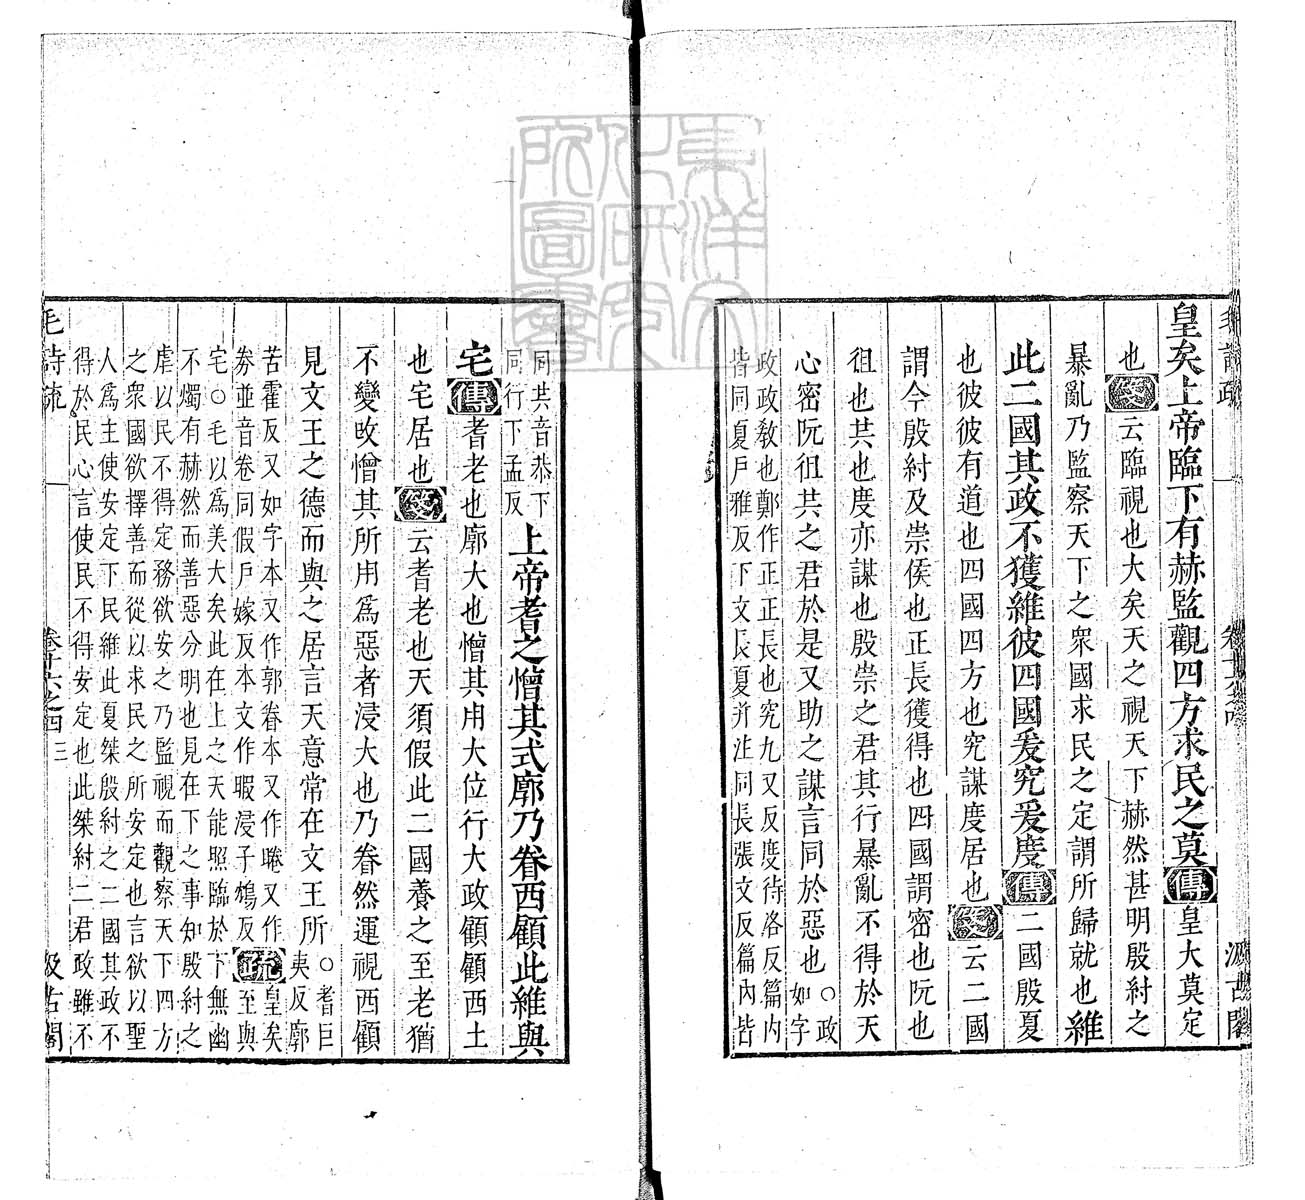 皇矣上帝臨下有赫監觀四方求民之莫傳皇大莫定
也箋云臨視也大矣天之視天下赫然甚明殷紂之
暴亂乃監察天下之眾國求民之定謂所歸就也維
此二國其政不獲維彼四國爰究爰度傳二國殷夏
也彼彼有道也四國四方也究謀度居也箋云二國
謂今殷紂及崇侯也正長獲得也四國謂密也阮也
徂也共也度亦謀也殷崇之君其行暴亂不得於天
心密阮徂共之君於是又助之謀言同於惡也○政如字
政政教也鄭作正正長也究九又反度待洛反篇內
皆同夏戶雅反下文長夏并注同長張文反篇內皆
同共音恭下
同行下孟反
上帝耆之憎其式廓乃眷西顧此維與
宅傳耆老也廓大也憎其用大位行大政顧顧西土
也宅居也箋云耆老也天須假此二國養之至老猶
不變改憎其所用為惡者浸大也乃眷然運視西顧
見文王之德而與之居言天意常在文王所○耆巨夷反廓
苦霍反又如字本又作郭眷本又作睠又作
劵並音卷同假戶嫁反本文作暇浸子鴆反疏皇矣至與
宅○毛以為美大矣此在上之天能照臨於下無幽
不燭有赫然而善惡分明也見在下之事知殷紂之
虐以民不得定務欲安之乃監視而觀察天下四方
之眾國欲擇善而從以求民之所安定也言欲以聖
人為主使安定下民維此夏桀殷紂之二國其政不
得於民心言使民不得安定也此桀紂二君政雖不
毛詩疏 卷十六之四 三 汲古閣